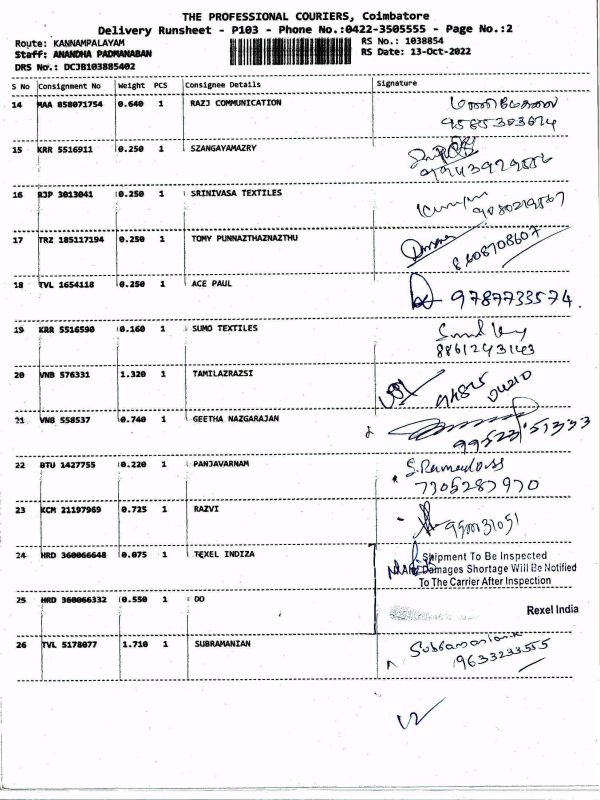 THE PROFESSIONAL COURIERS, Coimbatore
Delivery Runsheet - P103 - Phone No.:0422-3505555 - Page No.:2
Route: KANNAMPALAYAM
RS No.: 1038854
Staff: ANANDHA PADMANABAN
RS Date: 13-Oct-2022
DRS No.: DCJB103885402
S No Consignment No Weight PCS Consignee Details Signature
14 MAA 858071754 0.640 1 RAZJ COMMUNICATION
15 KRR 5516911 0.250 1 SZANGAYAMAZRY
16 RJP 3013041 0.250 1 SRINIVASA TEXTILES
17 TRZ 185117194 0.250 1 TOMY PUNNAZTHAZNAZTHU
8608708607
18 TVL 1654118 0.250 1 ACE PAUL
9787733574
19 KRR 5516590 0.160 1 SUMO TEXTILES
20 VNB 576331 1.320 1 TAMILAZRAZSI
21 VNB 558537 0.740 1 GEETHA NAZGARAJAN
99523 51333
22 BTU 1427755 0.220 1 PANJAVARNAM
S.Ramadoss
7305287970
23 KCM 21197969 0.725 1 RAZVI
24 HRD 360066648 0.075 1 TEXEL INDIZA
Shipment To Be Inspected
Damages Shortage Will Be Notified
To The Carrier After Inspection
25 HRD 360066332 0.550 1 DO
Rexel India
26 TVL 5178077 1.710 1 SUBRAMANIAN
Subramanian
9633233555